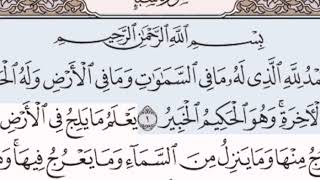 بِسْمِ ٱللَّهِ ٱلرَّحْمَٰنِ ٱلرَّحِيمِ
مْدُ لِلَّهِ ٱلَّذِى لَهُۥ مَا فِى ٱلسَّمَٰوَٰتِ وَمَا فِى ٱلْأَرْضِ وَلَهُ ٱلْحَ
ٱلْأَخِرَةِ ۚ وَهُوَ ٱلْحَكِيمُ ٱلْخَبِيرُ ١ يَعْلَمُ مَا يَلِجُ فِى ٱلْأَرْضِ
جُ مِنْهَا وَمَا يَنزِلُ مِنَ ٱلسَّمَآءِ وَمَا يَعْرُجُ فِيهَا ۚ وَهُ